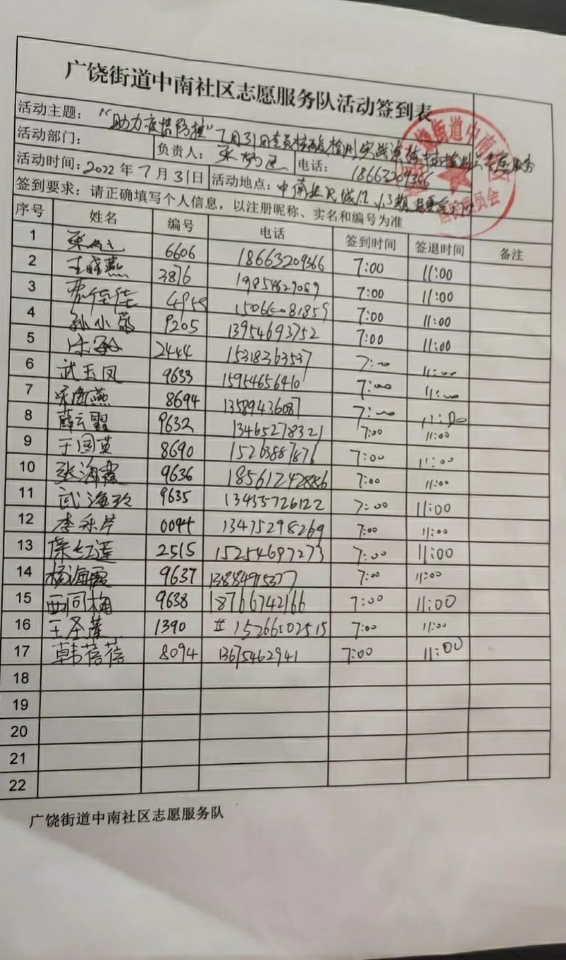 广饶街道中南社区志愿服务队活动签到表
活动主题：“助力疫情防控”7月31日全员核酸检测 志愿服务
活动部门： 负责人： 电话：18663209366
活动时间：2022年7月31日 活动地点：中南
签到要求：请正确填写个人信息，以注册昵称、实名和编号为准
序号 姓名 编号 电话 签到时间 签退时间 备注
1 6606 18663209366 7:00 11:00
2 3816 7:00 11:00
3 7:00 11:00
4 孙小菊 9205 13954693752 7:00 11:00
5 2444 15318363537 7:00 11:00
6 武玉凤 9633 15954656410 7:00 11:00
7 8694 13589436087 7:00 11:00
8 薛云霞 9632 13465278321 7:00 11:00
9 于国英 8690 15263887876 7:00 11:00
10 张海霞 9636 18561242886 7:00 11:00
11 武海玲 9635 13455726122 7:00 11:00
12 13475298269 7:00 11:00
13 2515 15254697273 7:00 11:00
14 杨海霞 9637 7:00 11:00
15 西同梅 9638 18766742166 7:00 11:00
16 王圣莲 1390 15266502515 7:00 11:00
17 韩蓓蓓 8094 13675462941 7:00 11:00
18
19
20
21
22
广饶街道中南社区志愿服务队